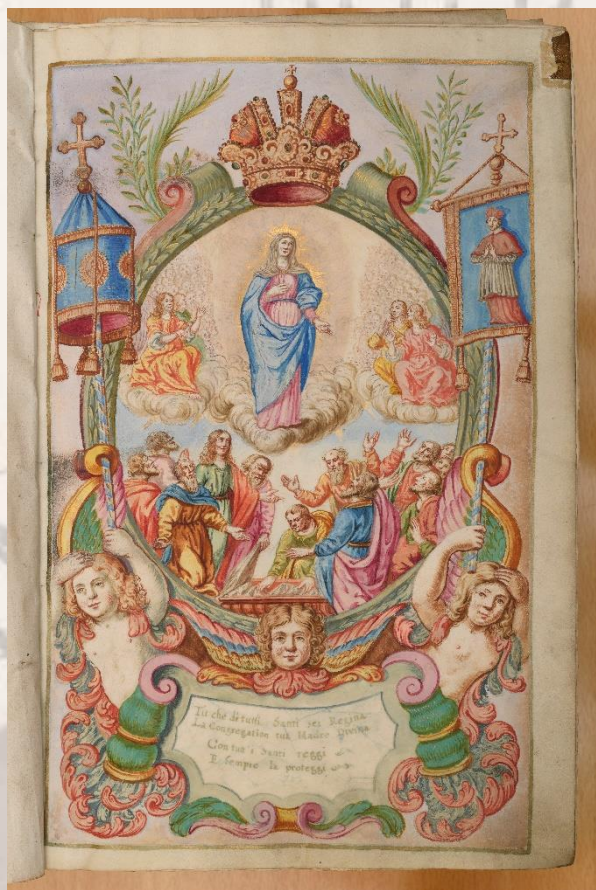 Tu che di tutti Santi sei Regina
La Congregation tua Madre Divina
Con tuoi Santi reggi
E sempre la proteggi